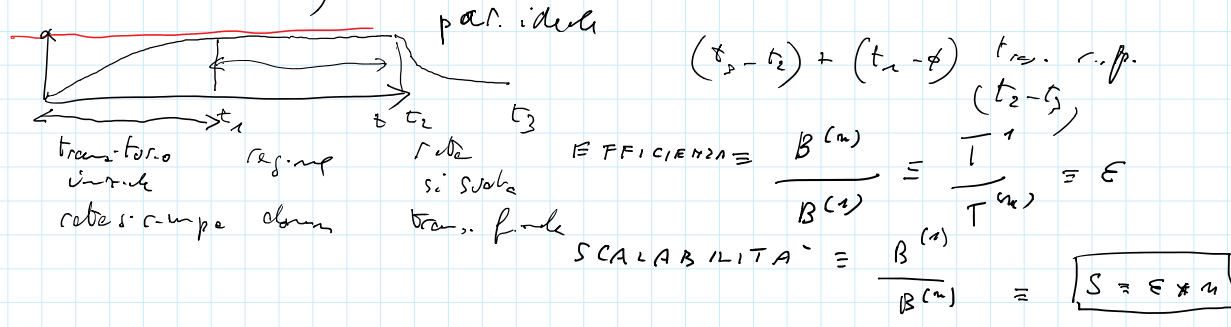 par. ideale
(t₃ - t₂) + (t₁ - φ) trans. r.p.
(t₂ - t₁)
t₁ t t₂ t₃
transitorio regime rete
iniziale si svuota
rete si riempe trans. finale
EFFICIENZA ≡ B⁽ⁿ⁾ / B⁽¹⁾ ≡ T¹ / T⁽ⁿ⁾ ≡ ε
SCALABILITA` ≡ B⁽¹⁾ / B⁽ⁿ⁾ ≡ S = ε * n